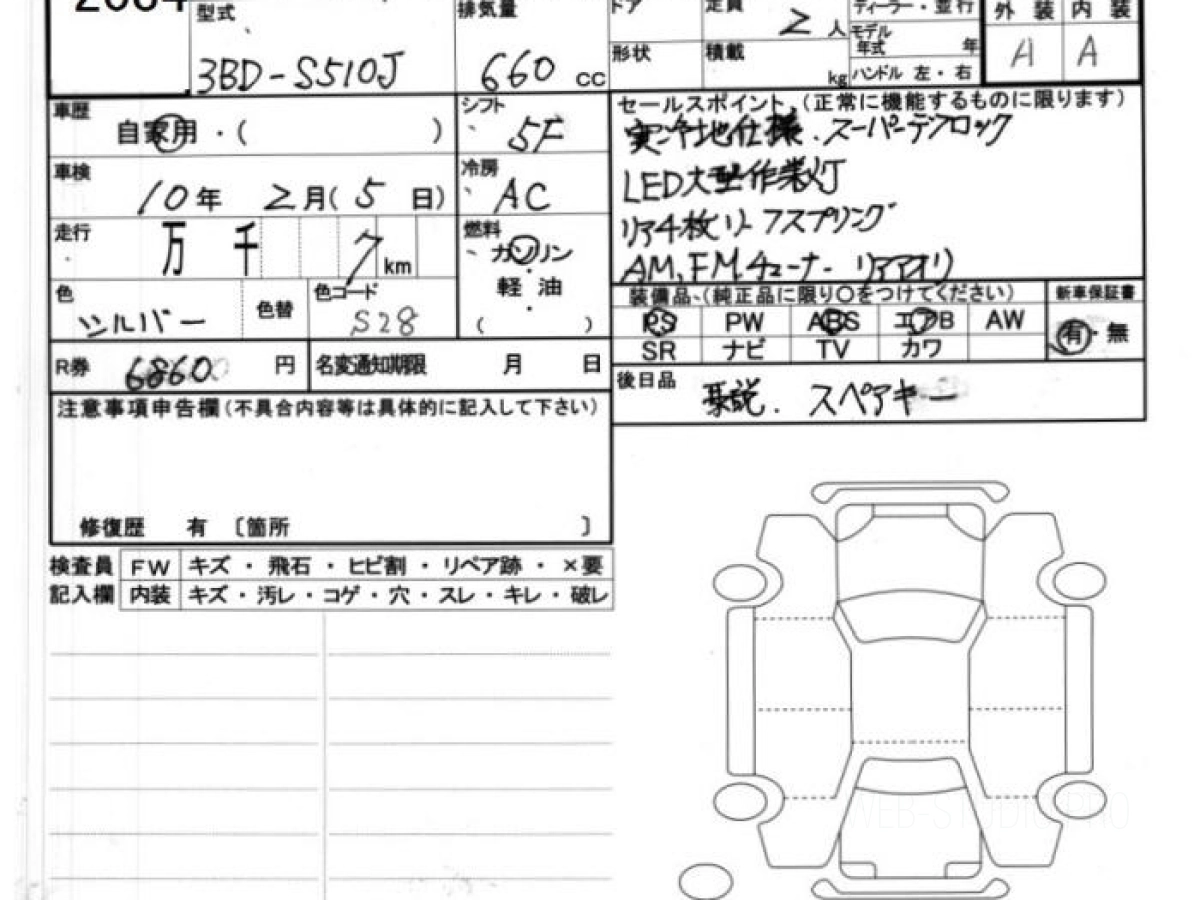 型式
3BD-S510J
排気量
660 cc
ドア
定員
2人
ディーラー・並行
モデル年式 年
形状
積載
kg
ハンドル 左・右
外装 内装
A A
車歴
自家用・( )
シフト
5F
車検
10年 2月(5日)
冷房
AC
走行
万 千 7 km
燃料
ガソリン
・
軽油
・
( )
色
シルバー
色替
色コード
S28
R券
6860 円
名変通知期限 月 日
セールスポイント (正常に機能するものに限ります)
寒冷地仕様、スーパーデフロック
LED大型作業灯
リア4枚リーフスプリング
AM,FMチューナー リアアオリ
装備品 (純正品に限り○をつけてください)
新車保証書
PS PW ABS エアB AW
有・無
SR ナビ TV カワ
後日品
取説. スペアキー
注意事項申告欄(不具合内容等は具体的に記入して下さい)
修復歴 有 〔箇所 〕
検査員 FW キズ・飛石・ヒビ割・リペア跡・×要
記入欄 内装 キズ・汚レ・コゲ・穴・スレ・キレ・破レ
WEB-STUDIO.PRO